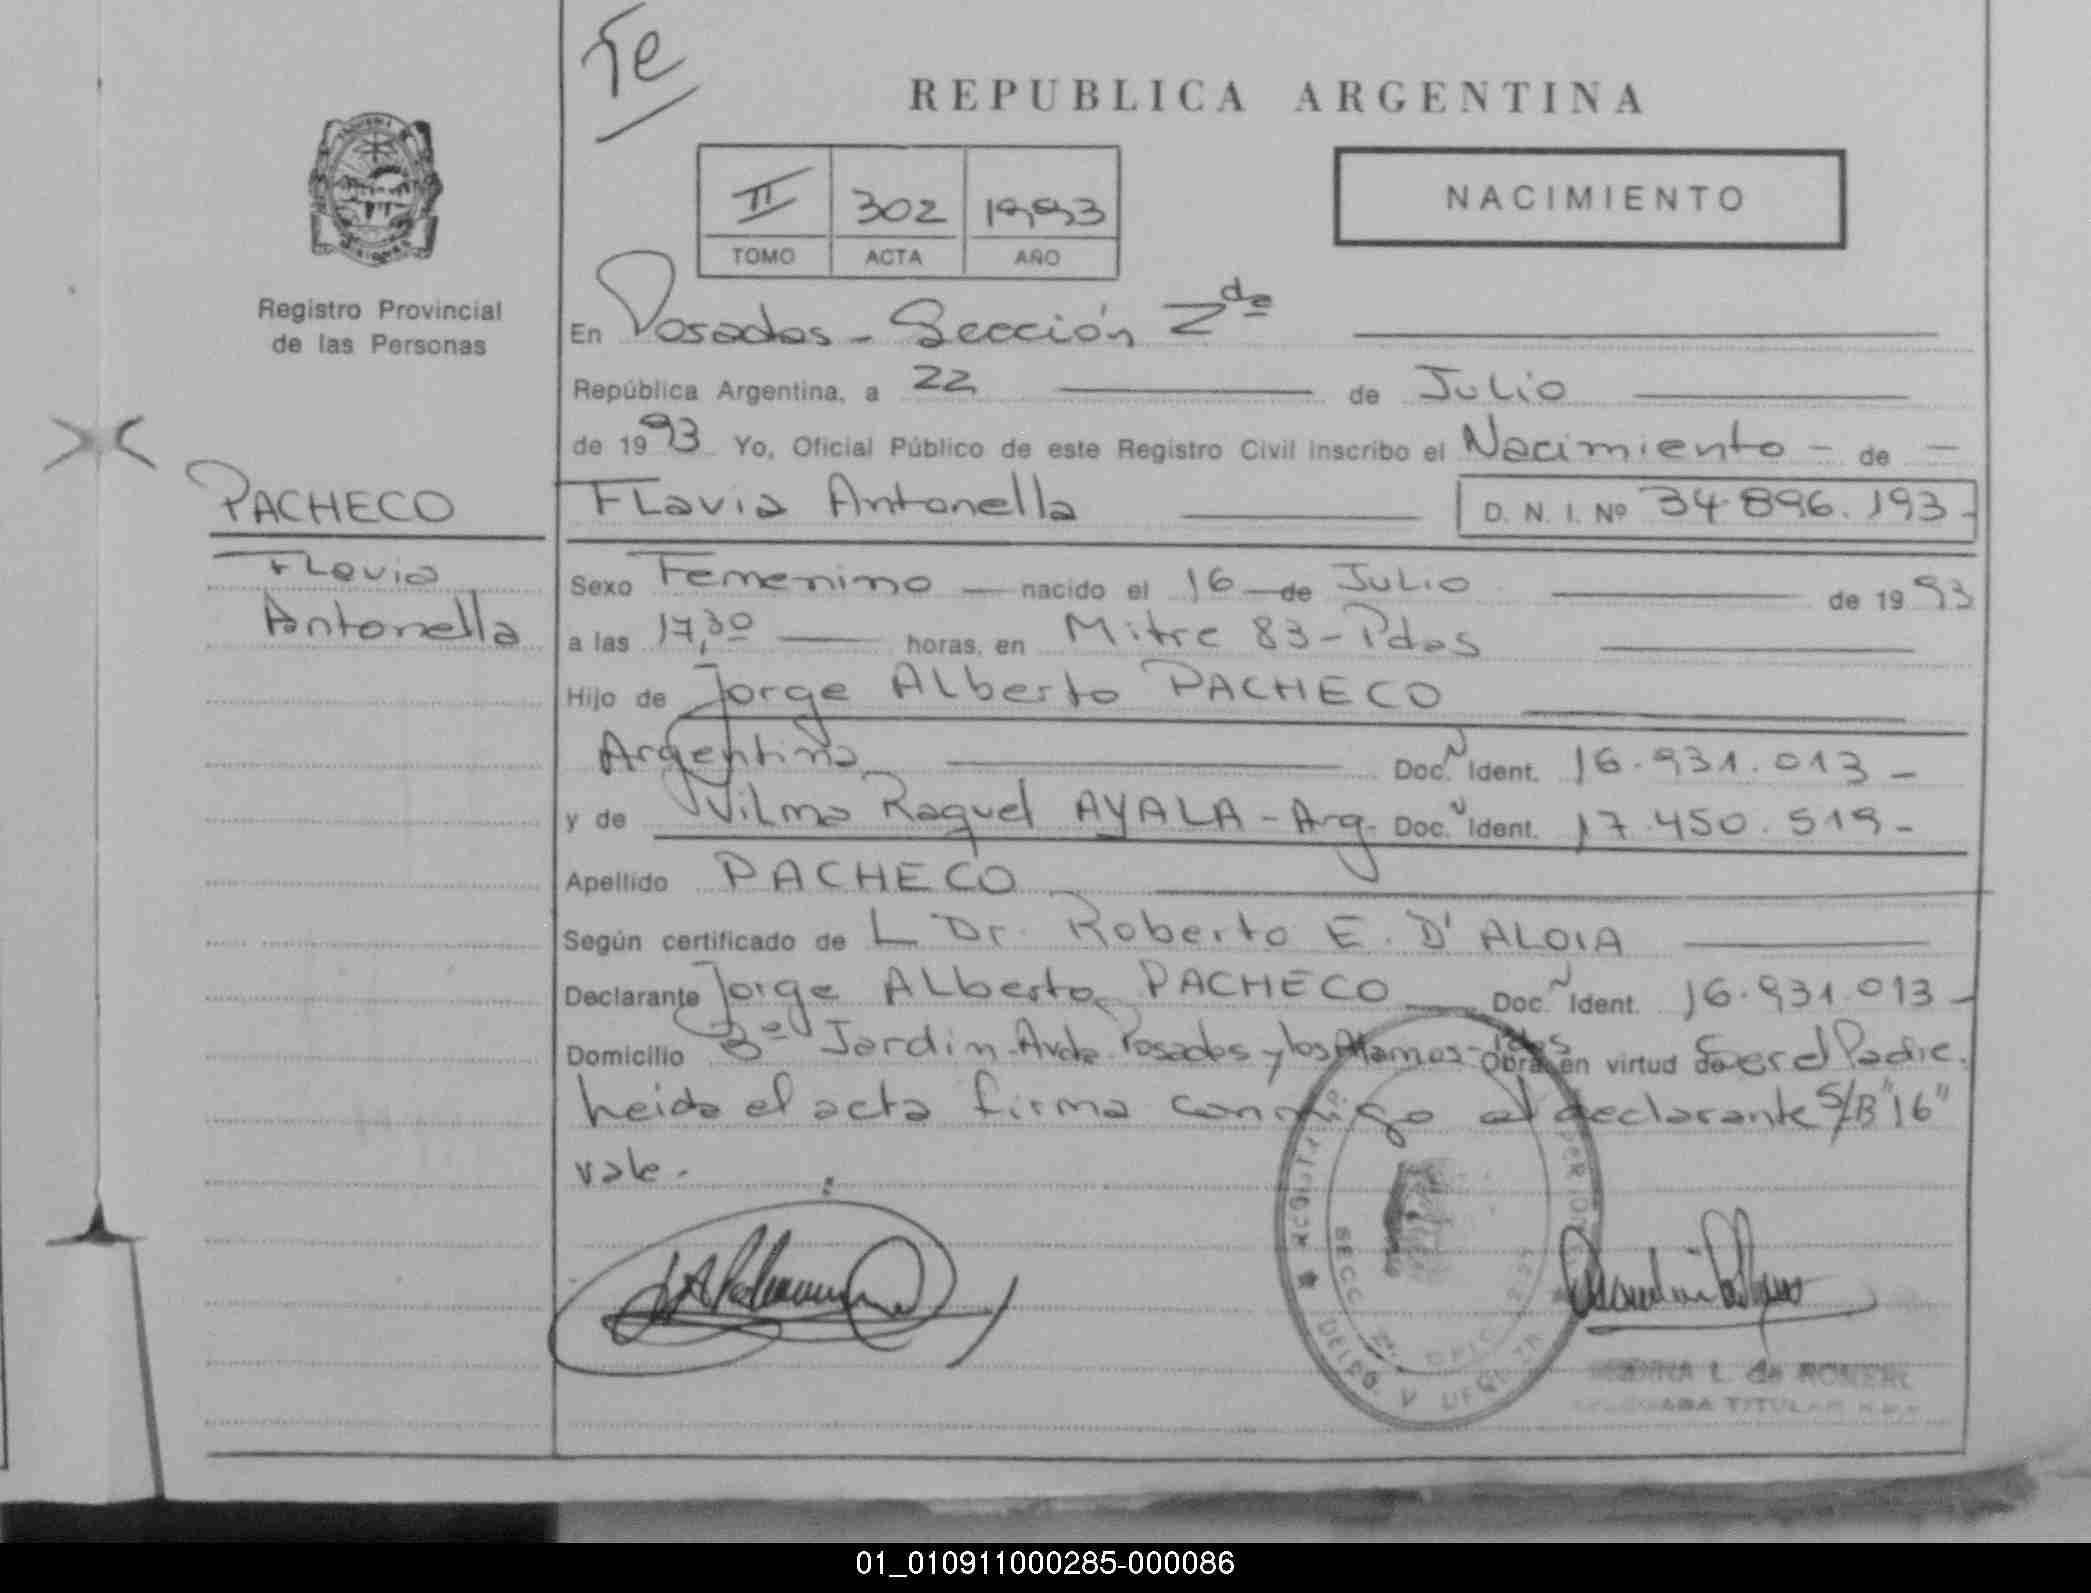 Te
REPUBLICA ARGENTINA
II 302 1993
TOMO ACTA AÑO
NACIMIENTO
Registro Provincial
de las Personas
En Posadas - Sección 2da
República Argentina, a 22 de Julio
de 1993 Yo, Oficial Público de este Registro Civil inscribo el Nacimiento - de -
PACHECO
Flavia
Antonella
Flavia Antonella D. N. I. Nº 34.896.193-
Sexo Femenino nacido el 16 de Julio de 1993
a las 17,30 horas, en Mitre 83 - Pdas
Hijo de Jorge Alberto PACHECO
Argentina Doc. Ident. 16.931.013-
y de Vilma Raquel AYALA - Arg. Doc. Ident. 17.450.519-
Apellido PACHECO
Según certificado de L Dr. Roberto E. D'ALOIA
Declarante Jorge Alberto PACHECO Doc. Ident. 16.931.013-
Domicilio Jardin. Avda. Posadas y los Alamos - Pdas Obra en virtud de ser el Padre.
Leida el acta firma conmigo el declarante S/B "16"
vale.
SECC 2a.
TITULAR
01_010911000285-000086